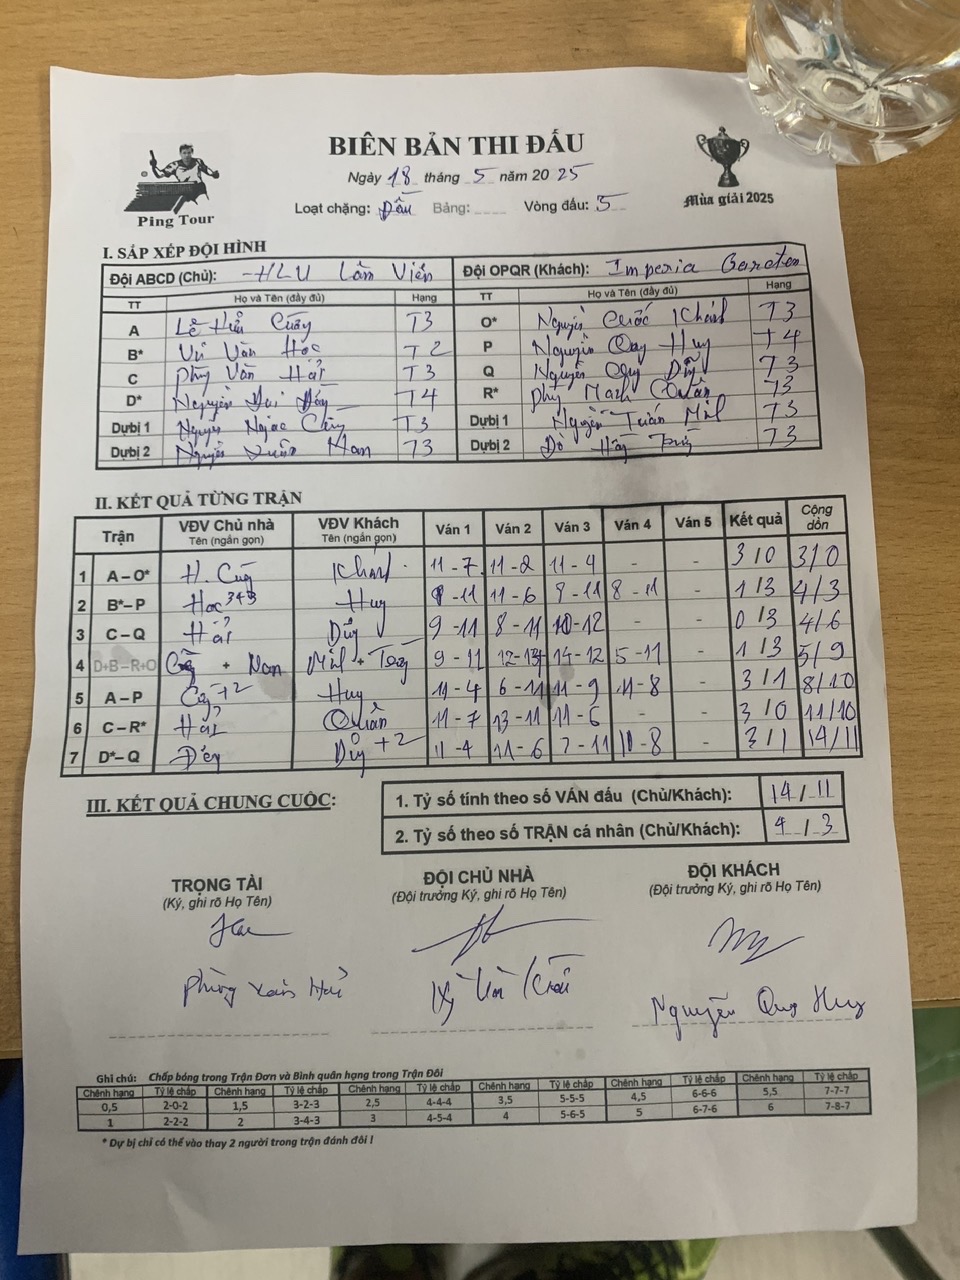 BIÊN BẢN THI ĐẤU
Ngày 18 tháng 5 năm 2025
Loạt chặng: Đấu Bảng: Vòng đấu: 5
Ping Tour
Mùa giải 2025
I. SẮP XẾP ĐỘI HÌNH
Đội ABCD (Chủ): HLV Lâm Viên Đội OPQR (Khách): Imperia Garden
TT Họ và Tên (đầy đủ) Hạng TT Họ và Tên (đầy đủ) Hạng
A Lê Hữu T3 O* Nguyễn Quốc Khánh T3
B* Vũ Văn Học T2 P Nguyễn Quy Huy T4
C Phùng Văn Hải T3 Q Nguyễn T3
D* Nguyễn T4 R* Quân T3
Dự bị 1 Nguyễn Ngọc T3 Dự bị 1 Nguyễn Tuấn T3
Dự bị 2 Nguyễn Xuân Nam T3 Dự bị 2 Đỗ T3
II. KẾT QUẢ TỪNG TRẬN
Trận VĐV Chủ nhà Tên (ngắn gọn) VĐV Khách Tên (ngắn gọn) Ván 1 Ván 2 Ván 3 Ván 4 Ván 5 Kết quả Cộng dồn
1 A – O* H. Khánh 11 - 7 11 - 2 11 - 4 - - 3/0 3/0
2 B*– P Học 343 Huy - 11 11 - 6 9 - 11 8 - 11 - 1/3 4/3
3 C – Q Hải 9 - 11 8 - 11 10 - 12 - - 0/3 4/6
4 D+B – R+O + Nam + 9 - 11 12 - 14 - 12 5 - 11 - 1/3 5/9
5 A – P +2 Huy 11 - 4 6 - 11 11 - 9 11 - 8 - 3/1 8/10
6 C – R* Hải Quân 11 - 7 13 - 11 11 - 6 - - 3/0 11/10
7 D*– Q +2 11 - 4 11 - 6 7 - 11 - 8 - 3/1 14/11
III. KẾT QUẢ CHUNG CUỘC:
1. Tỷ số tính theo số VÁN đấu (Chủ/Khách): 14/11
2. Tỷ số theo số TRẬN cá nhân (Chủ/Khách): 4/3
TRỌNG TÀI
(Ký, ghi rõ Họ Tên)
ĐỘI CHỦ NHÀ
(Đội trưởng Ký, ghi rõ Họ Tên)
ĐỘI KHÁCH
(Đội trưởng Ký, ghi rõ Họ Tên)
Nguyễn Quy Huy
Ghi chú: Chấp bóng trong Trận Đơn và Bình quân hạng trong Trận Đôi
Chênh hạng Tỷ lệ chấp Chênh hạng Tỷ lệ chấp Chênh hạng Tỷ lệ chấp Chênh hạng Tỷ lệ chấp Chênh hạng Tỷ lệ chấp Chênh hạng Tỷ lệ chấp
0,5 2-0-2 1,5 3-2-3 2,5 4-4-4 3,5 5-5-5 4,5 6-6-6 5,5 7-7-7
1 2-2-2 2 3-4-3 3 4-5-4 4 5-6-5 5 6-7-6 6 7-8-7
* Dự bị chỉ có thể vào thay 2 người trong trận đánh đôi !